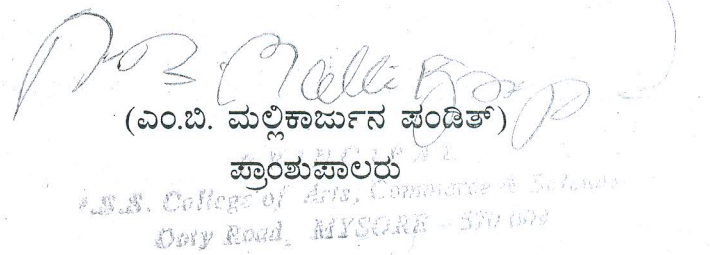 (ಎಂ.ಬಿ. ಮಲ್ಲಿಕಾರ್ಜುನ ಪಂಡಿತ್)
ಪ್ರಾಂಶುಪಾಲರು
PRINCIPAL
S.S. College of Arts, Commerce & Science
Ooty Road, MYSORE - 570